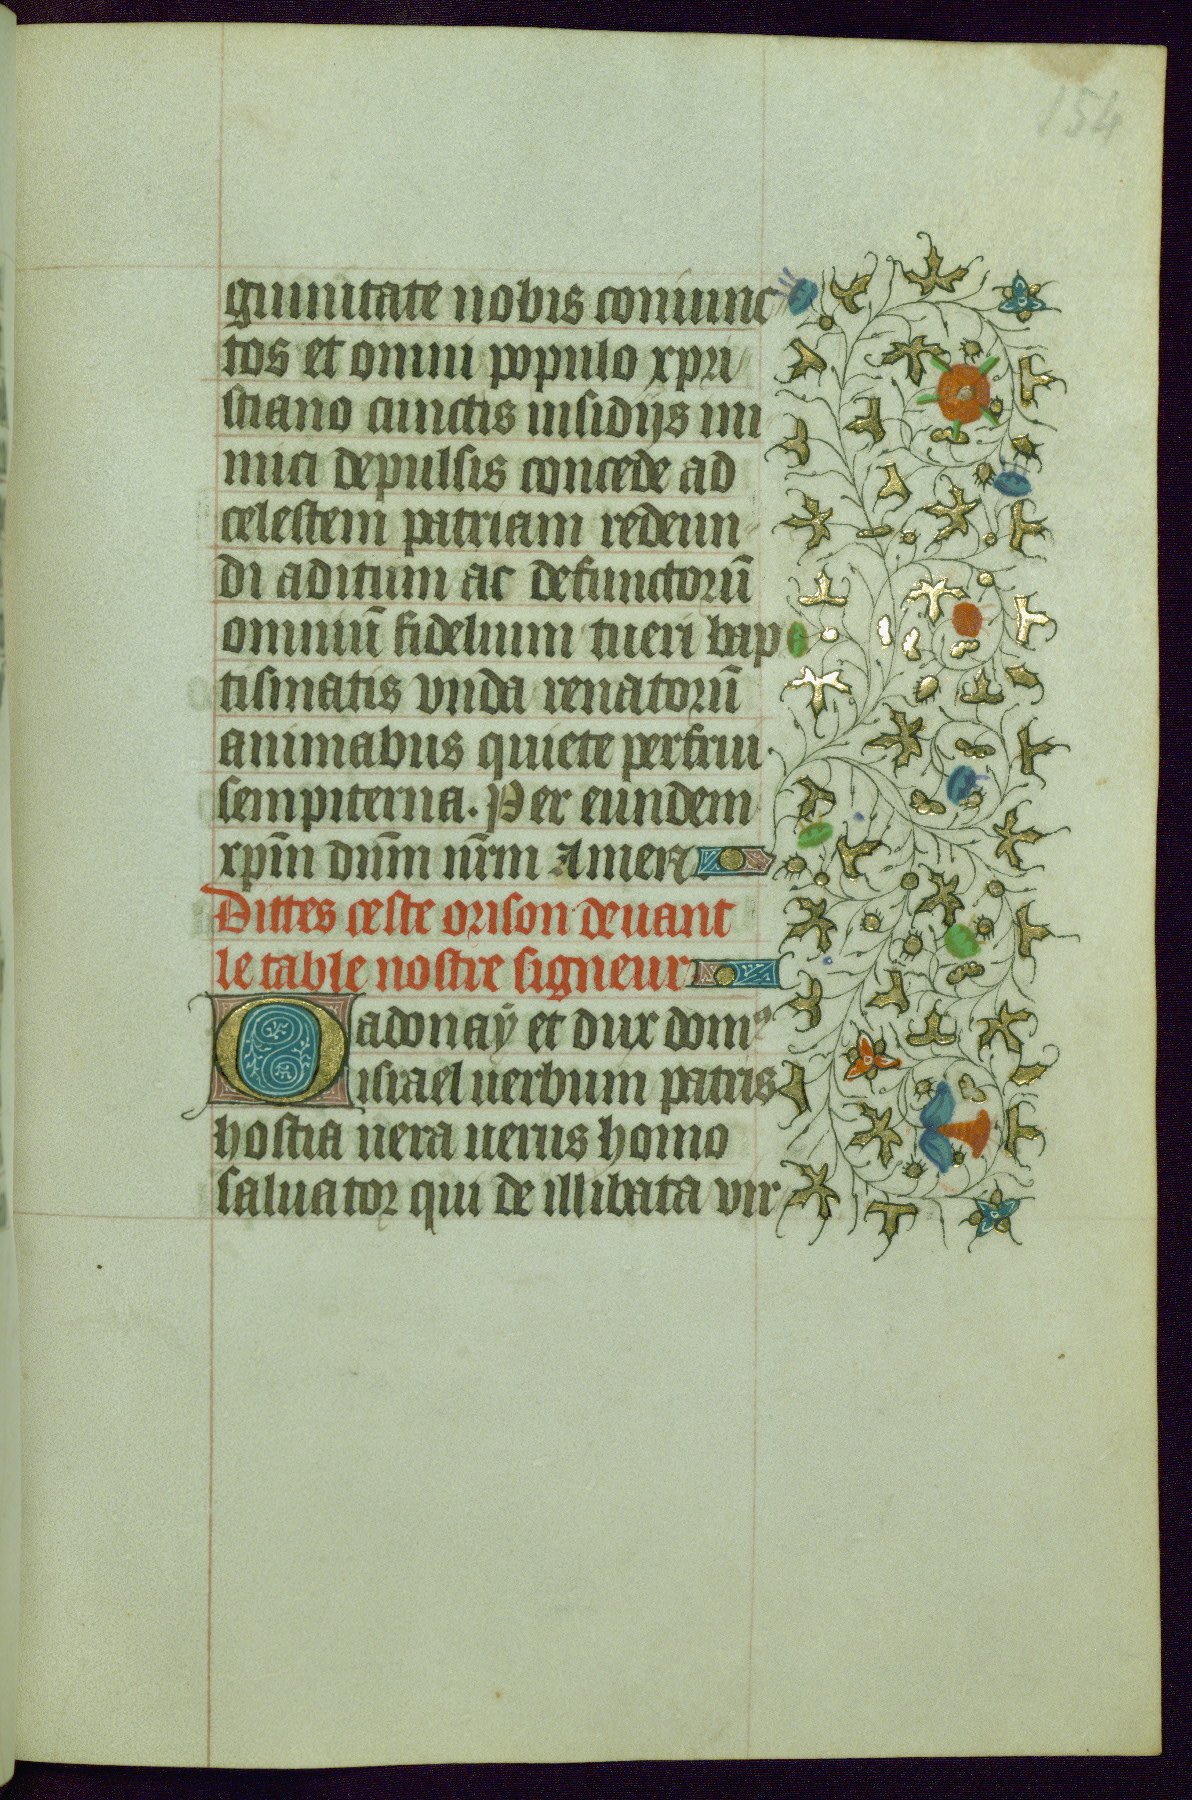 154
guinitate nobis coniunc
tos et omni populo xpri
stiano cunctis insidijs ini
mici depulsis concede ad
celestem patriam redeun
di aditum ac defunctorū
omniū fidelium tueri bap
tismatis vnda renatorū
animabus quiete perfrui
sempiterna. Per eundem
xpm̄ dnm̄ nrm̄ Amen
Dittes ceste orison deuant
le table nostre signeur
O adonaÿ et dux domꝰ
israel uerbum patris
hostia uera uerus homo
saluator qui de illibata vir